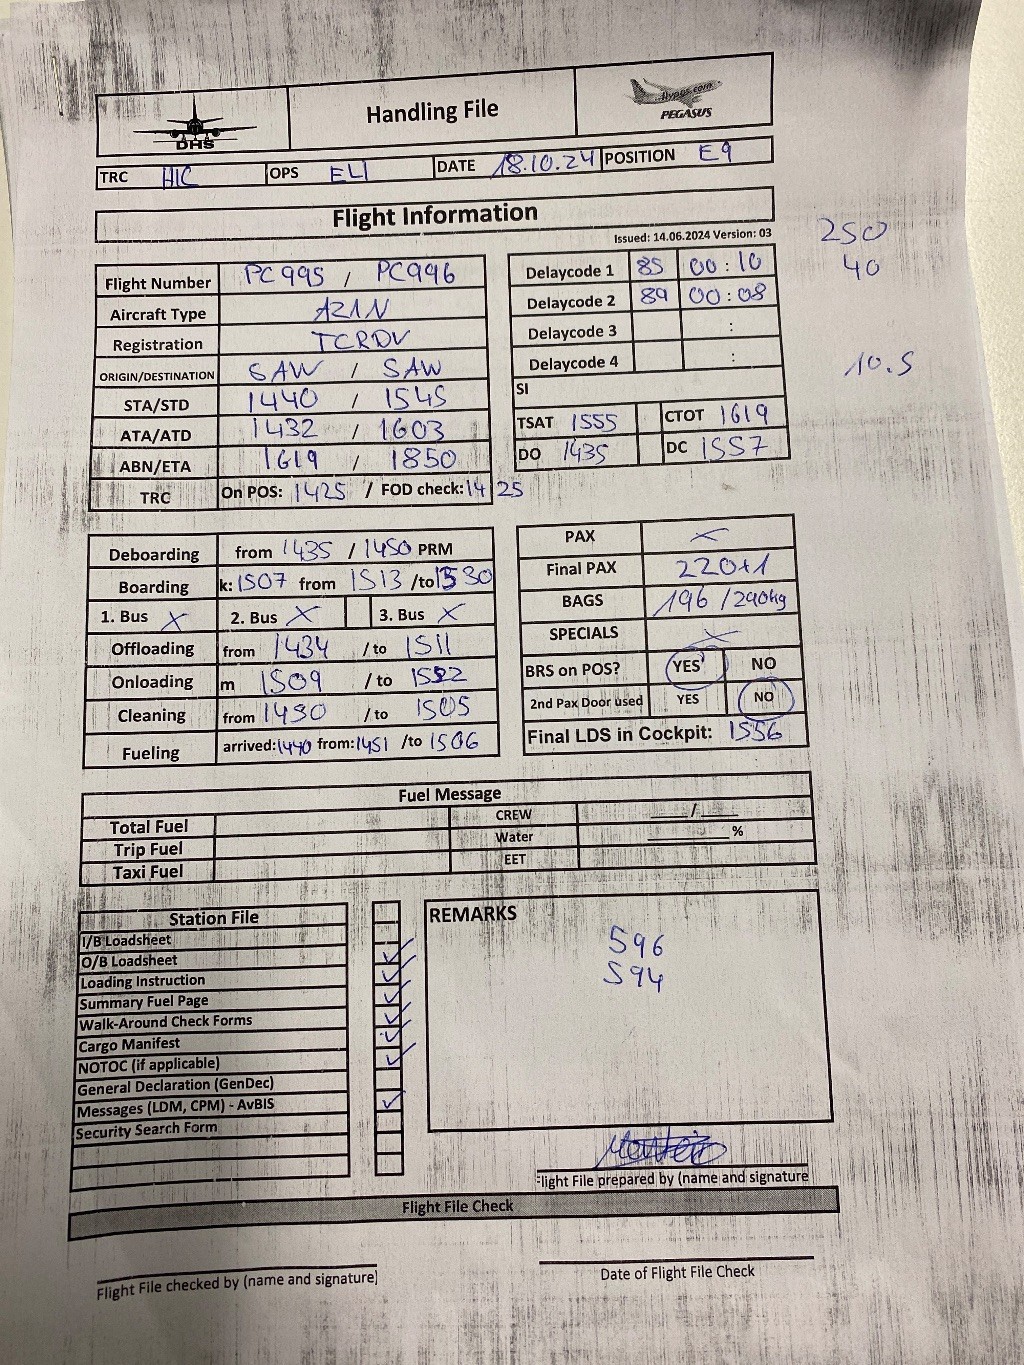 DHS
Handling File
flypgs.com
PEGASUS
TRC HIC OPS ELI DATE 18.10.24 POSITION E9
Flight Information
Issued: 14.06.2024 Version: 03
250
40
10.5
Flight Number PC995 / PC996
Aircraft Type A21N
Registration TCRDV
ORIGIN/DESTINATION SAW / SAW
STA/STD 1440 / 1545
ATA/ATD 1432 / 1603
ABN/ETA 1619 / 1850
TRC On POS: 1425 / FOD check: 14 25
Delaycode 1 85 00:10
Delaycode 2 89 00:08
Delaycode 3 :
Delaycode 4 :
SI
TSAT 1555 CTOT 1619
DO 1435 DC 1557
Deboarding from 1435 / 1450 PRM
Boarding k: 1507 from 1513 /to 1530
1. Bus X 2. Bus X 3. Bus X
Offloading from 1434 /to 1511
Onloading m 1509 /to 1522
Cleaning from 1450 /to 1505
Fueling arrived: 1440 from: 1451 /to 1506
PAX
Final PAX 220+1
BAGS 196 / 290kg
SPECIALS
BRS on POS? YES NO
2nd Pax Door used YES NO
Final LDS in Cockpit: 1556
Fuel Message
Total Fuel CREW ____/____
Trip Fuel Water ________%
Taxi Fuel EET
Station File
I/B Loadsheet
O/B Loadsheet
Loading Instruction
Summary Fuel Page
Walk-Around Check Forms
Cargo Manifest
NOTOC (if applicable)
General Declaration (GenDec)
Messages (LDM, CPM) - AvBIS
Security Search Form
REMARKS
596
594
Flight File prepared by (name and signature
Flight File Check
Flight File checked by (name and signature)
Date of Flight File Check